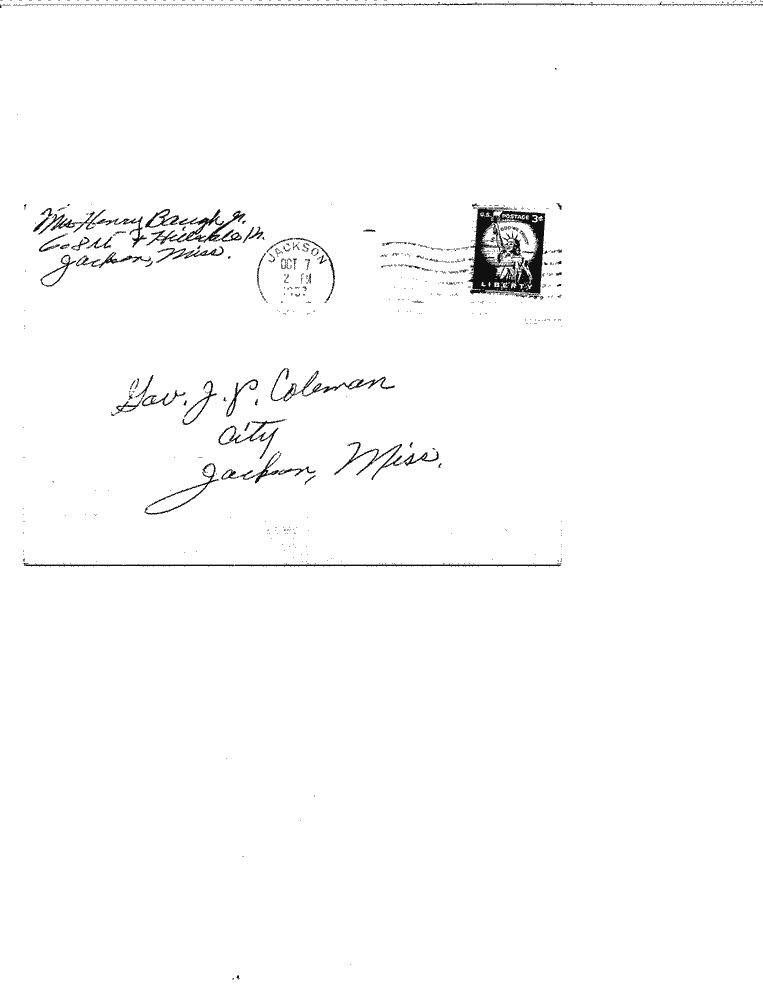 Mrs Henry Baugh Jr.
Hillsdale Dr.
Jackson, Miss.
JACKSON
OCT 7
2 PM
1957
U.S. POSTAGE 3¢
IN GOD WE TRUST
LIBERTY
Gov. J. P. Coleman
City
Jackson, Miss.